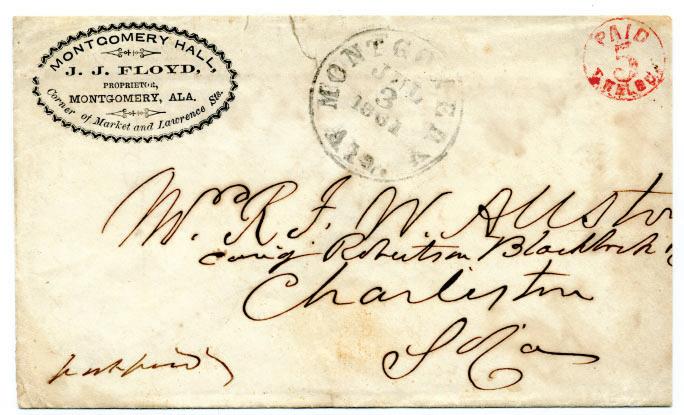 MONTGOMERY HALL,
J. J. FLOYD,
PROPRIETOR,
MONTGOMERY, ALA.
Corner of Market and Lawrence Sts.
MONTGOMERY
JUL
3
1861
PAID
5
Mrs. R. F. W. Allston
Robertson Blacklock
Charleston
S Ca